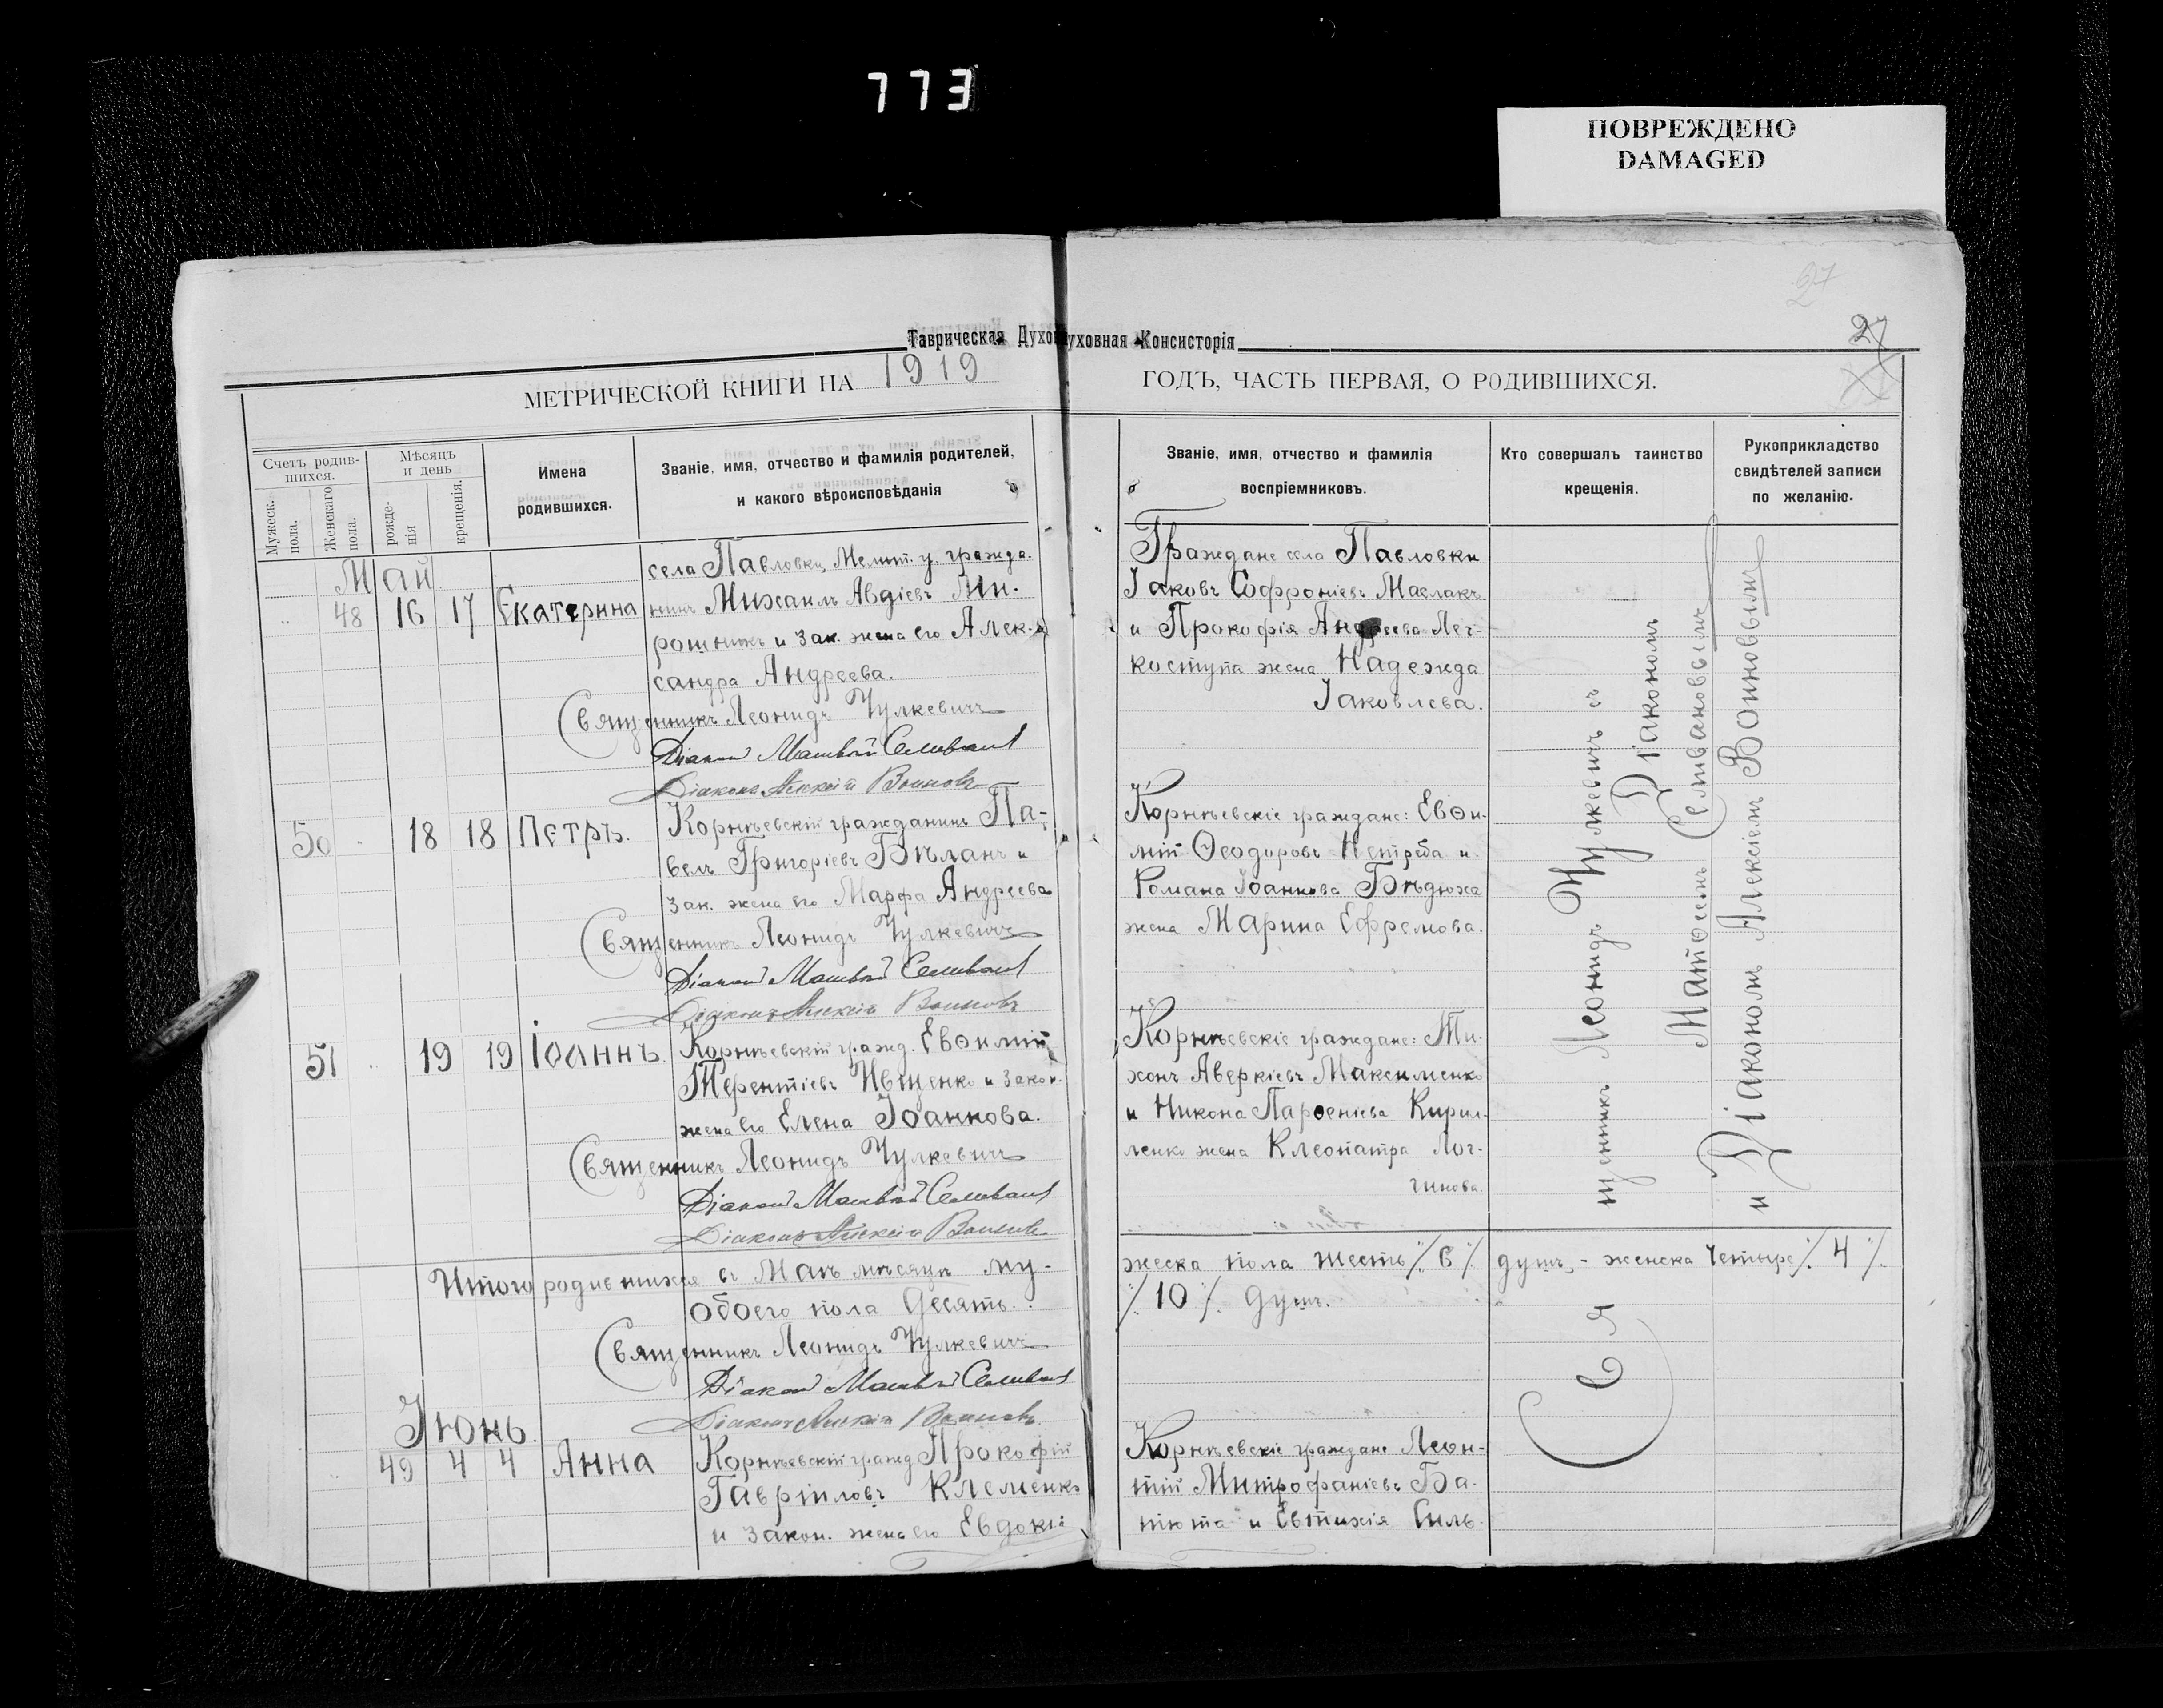 773
ПОВРЕЖДЕНО
DAMAGED
27
27
Таврическая Духо
уховная Консисторія
МЕТРИЧЕСКОЙ КНИГИ НА 1919
ГОДЪ, ЧАСТЬ ПЕРВАЯ, О РОДИВШИХСЯ.
Счетъ родив-
шихся.
Мужеск.
пола.
Женскаго
пола.
Мѣсяцъ
и день
рожде-
нія
крещенія.
Имена
родившихся.
Званіе, имя, отчество и фамилія родителей,
и какого вѣроисповѣданія
Званіе, имя, отчество и фамилія
воспріемниковъ.
Кто совершалъ таинство
крещенія.
Рукоприкладство
свидѣтелей записи
по желанію.
Май
48 16 17 Екатерина
села Павловки, Мелит. у. гражда.
нинъ Михаилъ Авдіевъ Ми-
рошникъ и зак. жена его Алек-
сандра Андреева.
Священникъ Леонидъ Чулкевичъ
Діаконъ Матвѣй Селиванов
Діаконъ Алексій Воиновъ
Граждане села Павловки
Іаковъ Софроніевъ Маслакъ
и Прокофія Андреева Лег-
коступа жена Надежда
Іаковлева.
50 18 18 Петръ.
Корнѣевскій гражданинъ Па-
велъ Григоріевъ Бѣланъ и
зак. жена его Марфа Андреева
Священникъ Леонидъ Чулкевичъ
Діаконъ Матвѣй Селиванов
Діаконъ Алексій Воиновъ
Корнѣевскіе граждане: Евѳи-
мій Ѳеодоровъ Нетреба и
Романа Іоаннова Бѣдюха
жена Марина Ефремова.
51 19 19 Іоаннъ.
Корнѣевскій гражд. Евѳимій
Терентіевъ Ищенко и закон.
жена его Елена Іоаннова.
Священникъ Леонидъ Чулкевичъ
Діаконъ Матвѣй Селиванов
Діаконъ Алексій Воиновъ
Корнѣевскіе граждане: Ти-
хонъ Аверкіевъ Максименко
и Никона Парѳеніева Кирил-
ленко жена Клеопатра Лог-
гинова.
Итого родившихся въ Маѣ мѣсяцѣ му-
жеска пола шесть /. 6 /. душъ, - женска четыре /. 4 /.
обоего пола десять.
/. 10 /. душъ.
Священникъ Леонидъ Чулкевичъ
Діаконъ Матвѣй Селиванов
Діаконъ Алексій Воиновъ
Іюнь.
49 4 4 Анна
Корнѣевскій гражд Прокофій
Гавріиловъ Клеменко
и закон. жена его Евдокі
Корнѣевскіе граждане Леон-
тій Митрофаніевъ Ба-
тюта и Евтихія Силь-
Свя
щенникъ Леонидъ Чулкевичъ съ
Діакономъ
Матѳеемъ Селивановымъ
и Діакономъ Алексіемъ Воиновымъ